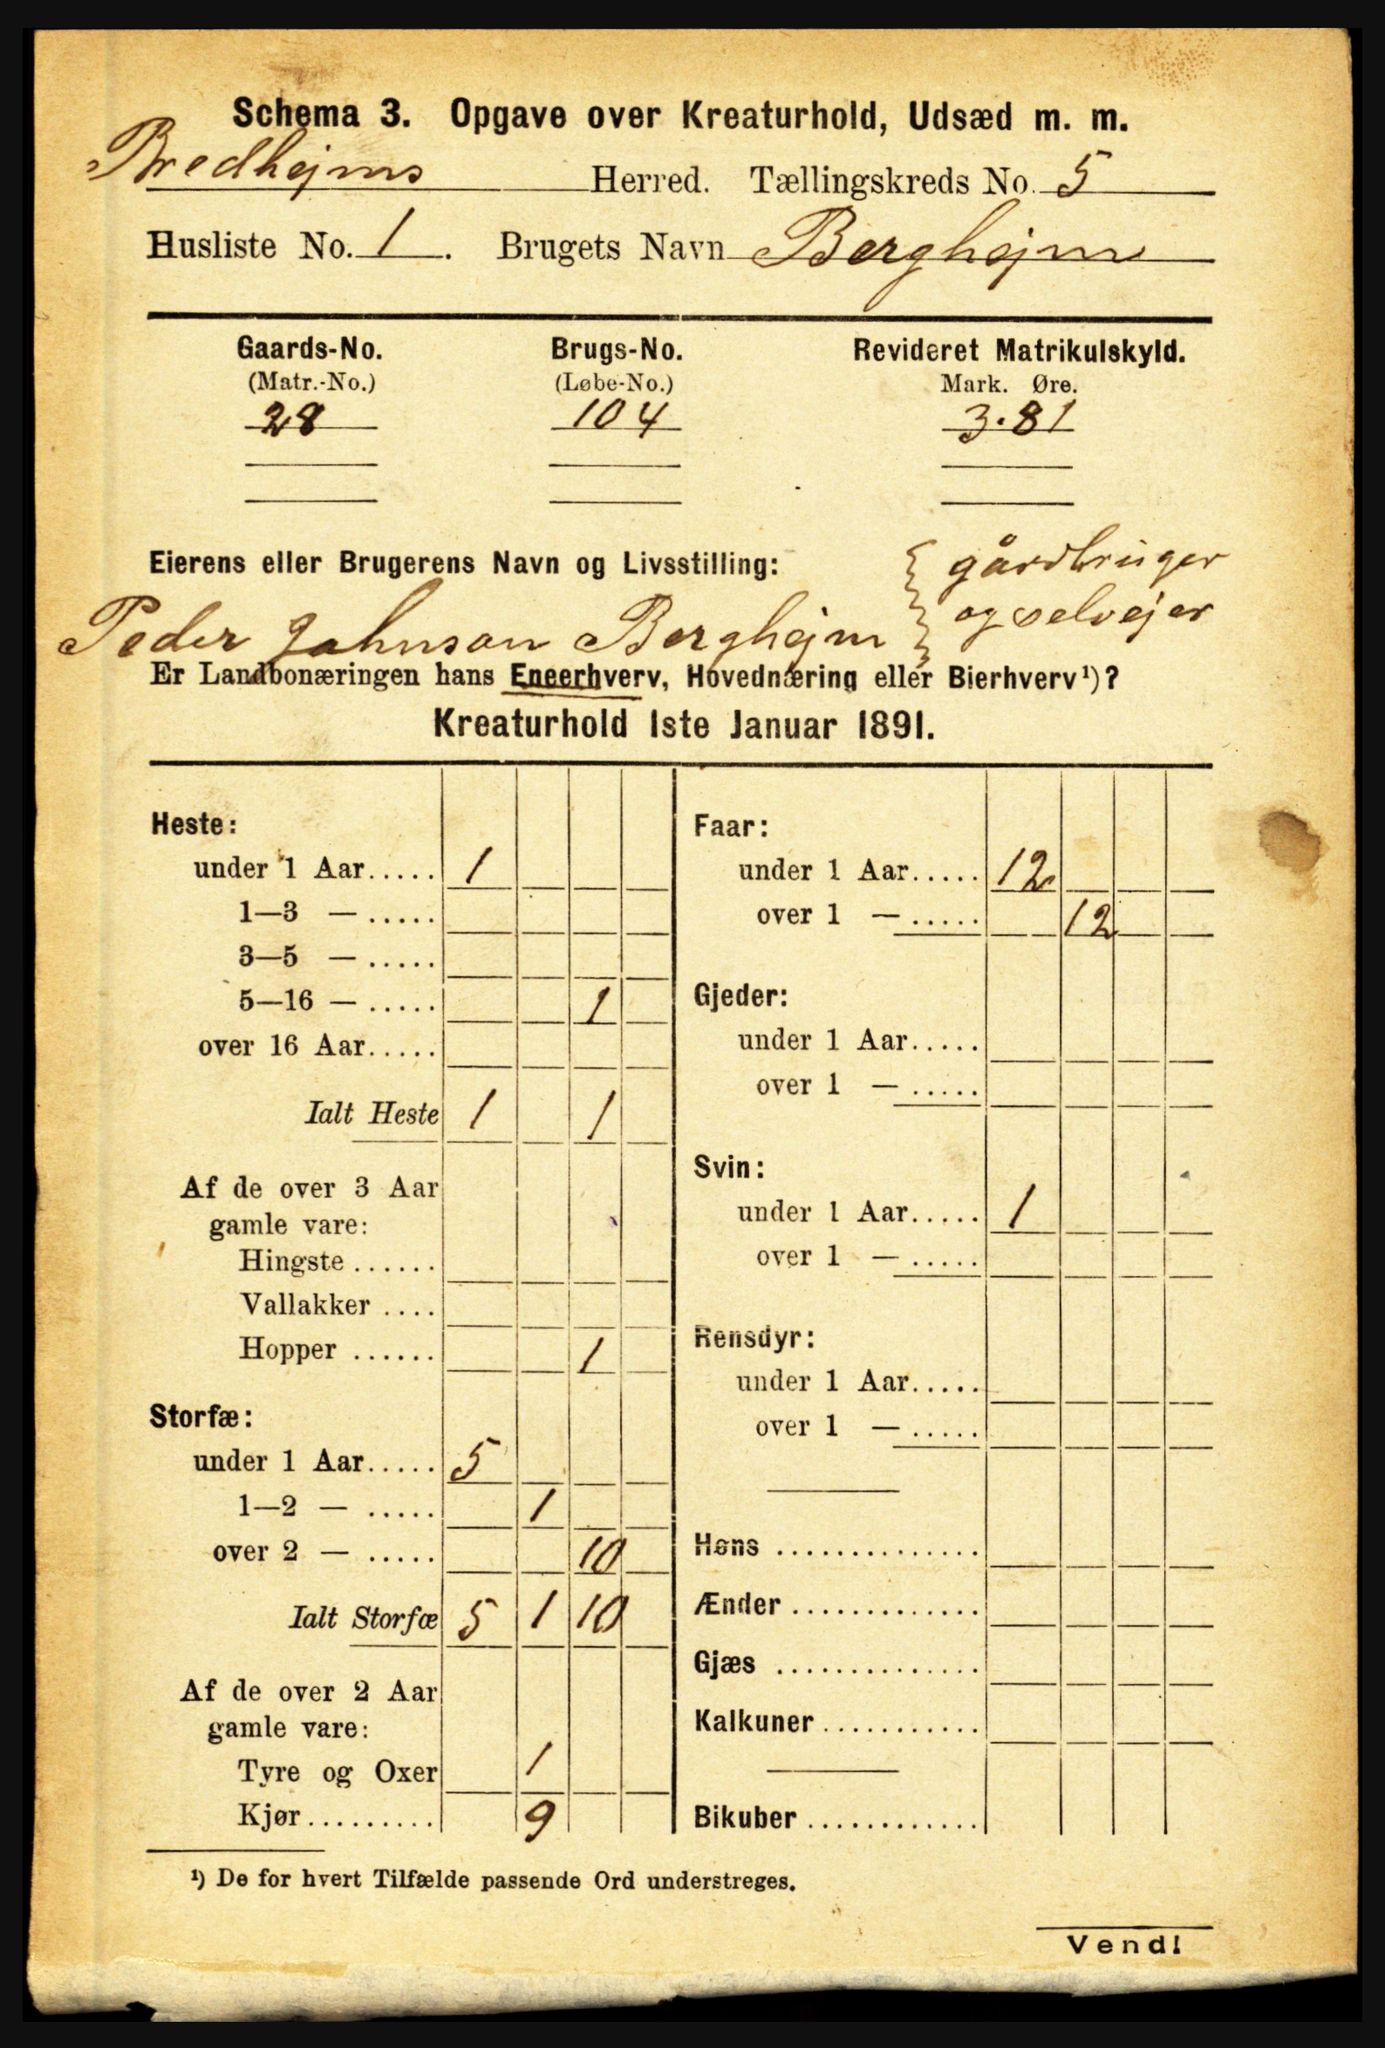 Schema 3. Opgave over Kreaturhold, Udsæd m. m.
Bredhejms Herred. Tællingskreds No. 5
Husliste No. 1. Brugets Navn Berghejm
Gaards-No. Brugs-No. Revideret Matrikulskyld.
(Matr.-No.) (Løbe-No.) Mark. Øre.
28 104 3.81
Eierens eller Brugerens Navn og Livsstilling: gårdbruger
og selvejer
Peder Johnson Berghejm
Er Landbonæringen hans Eneerhverv, Hovednæring eller Bierhverv¹)?
Kreaturhold 1ste Januar 1891.
Heste:
under 1 Aar..... 1
1—3 — .....
3—5 — .....
5—16 — ..... 1
over 16 Aar.....
Ialt Heste 1 1
Af de over 3 Aar
gamle vare:
Hingste ......
Vallakker ....
Hopper ...... 1
Storfæ:
under 1 Aar..... 5
1—2 — ..... 1
over 2 — ..... 10
Ialt Storfæ 5 1 10
Af de over 2 Aar
gamle vare:
Tyre og Oxer 1
Kjør......... 9
Faar:
under 1 Aar..... 12
over 1 — ..... 12
Gjeder:
under 1 Aar.....
over 1 — .....
Svin:
under 1 Aar..... 1
over 1 — .....
Rensdyr:
under 1 Aar.....
over 1 — .....
Høns ..............
Ænder .............
Gjæs ..............
Kalkuner...........
Bikuber ............
¹) De for hvert Tilfælde passende Ord understreges.
Vend!